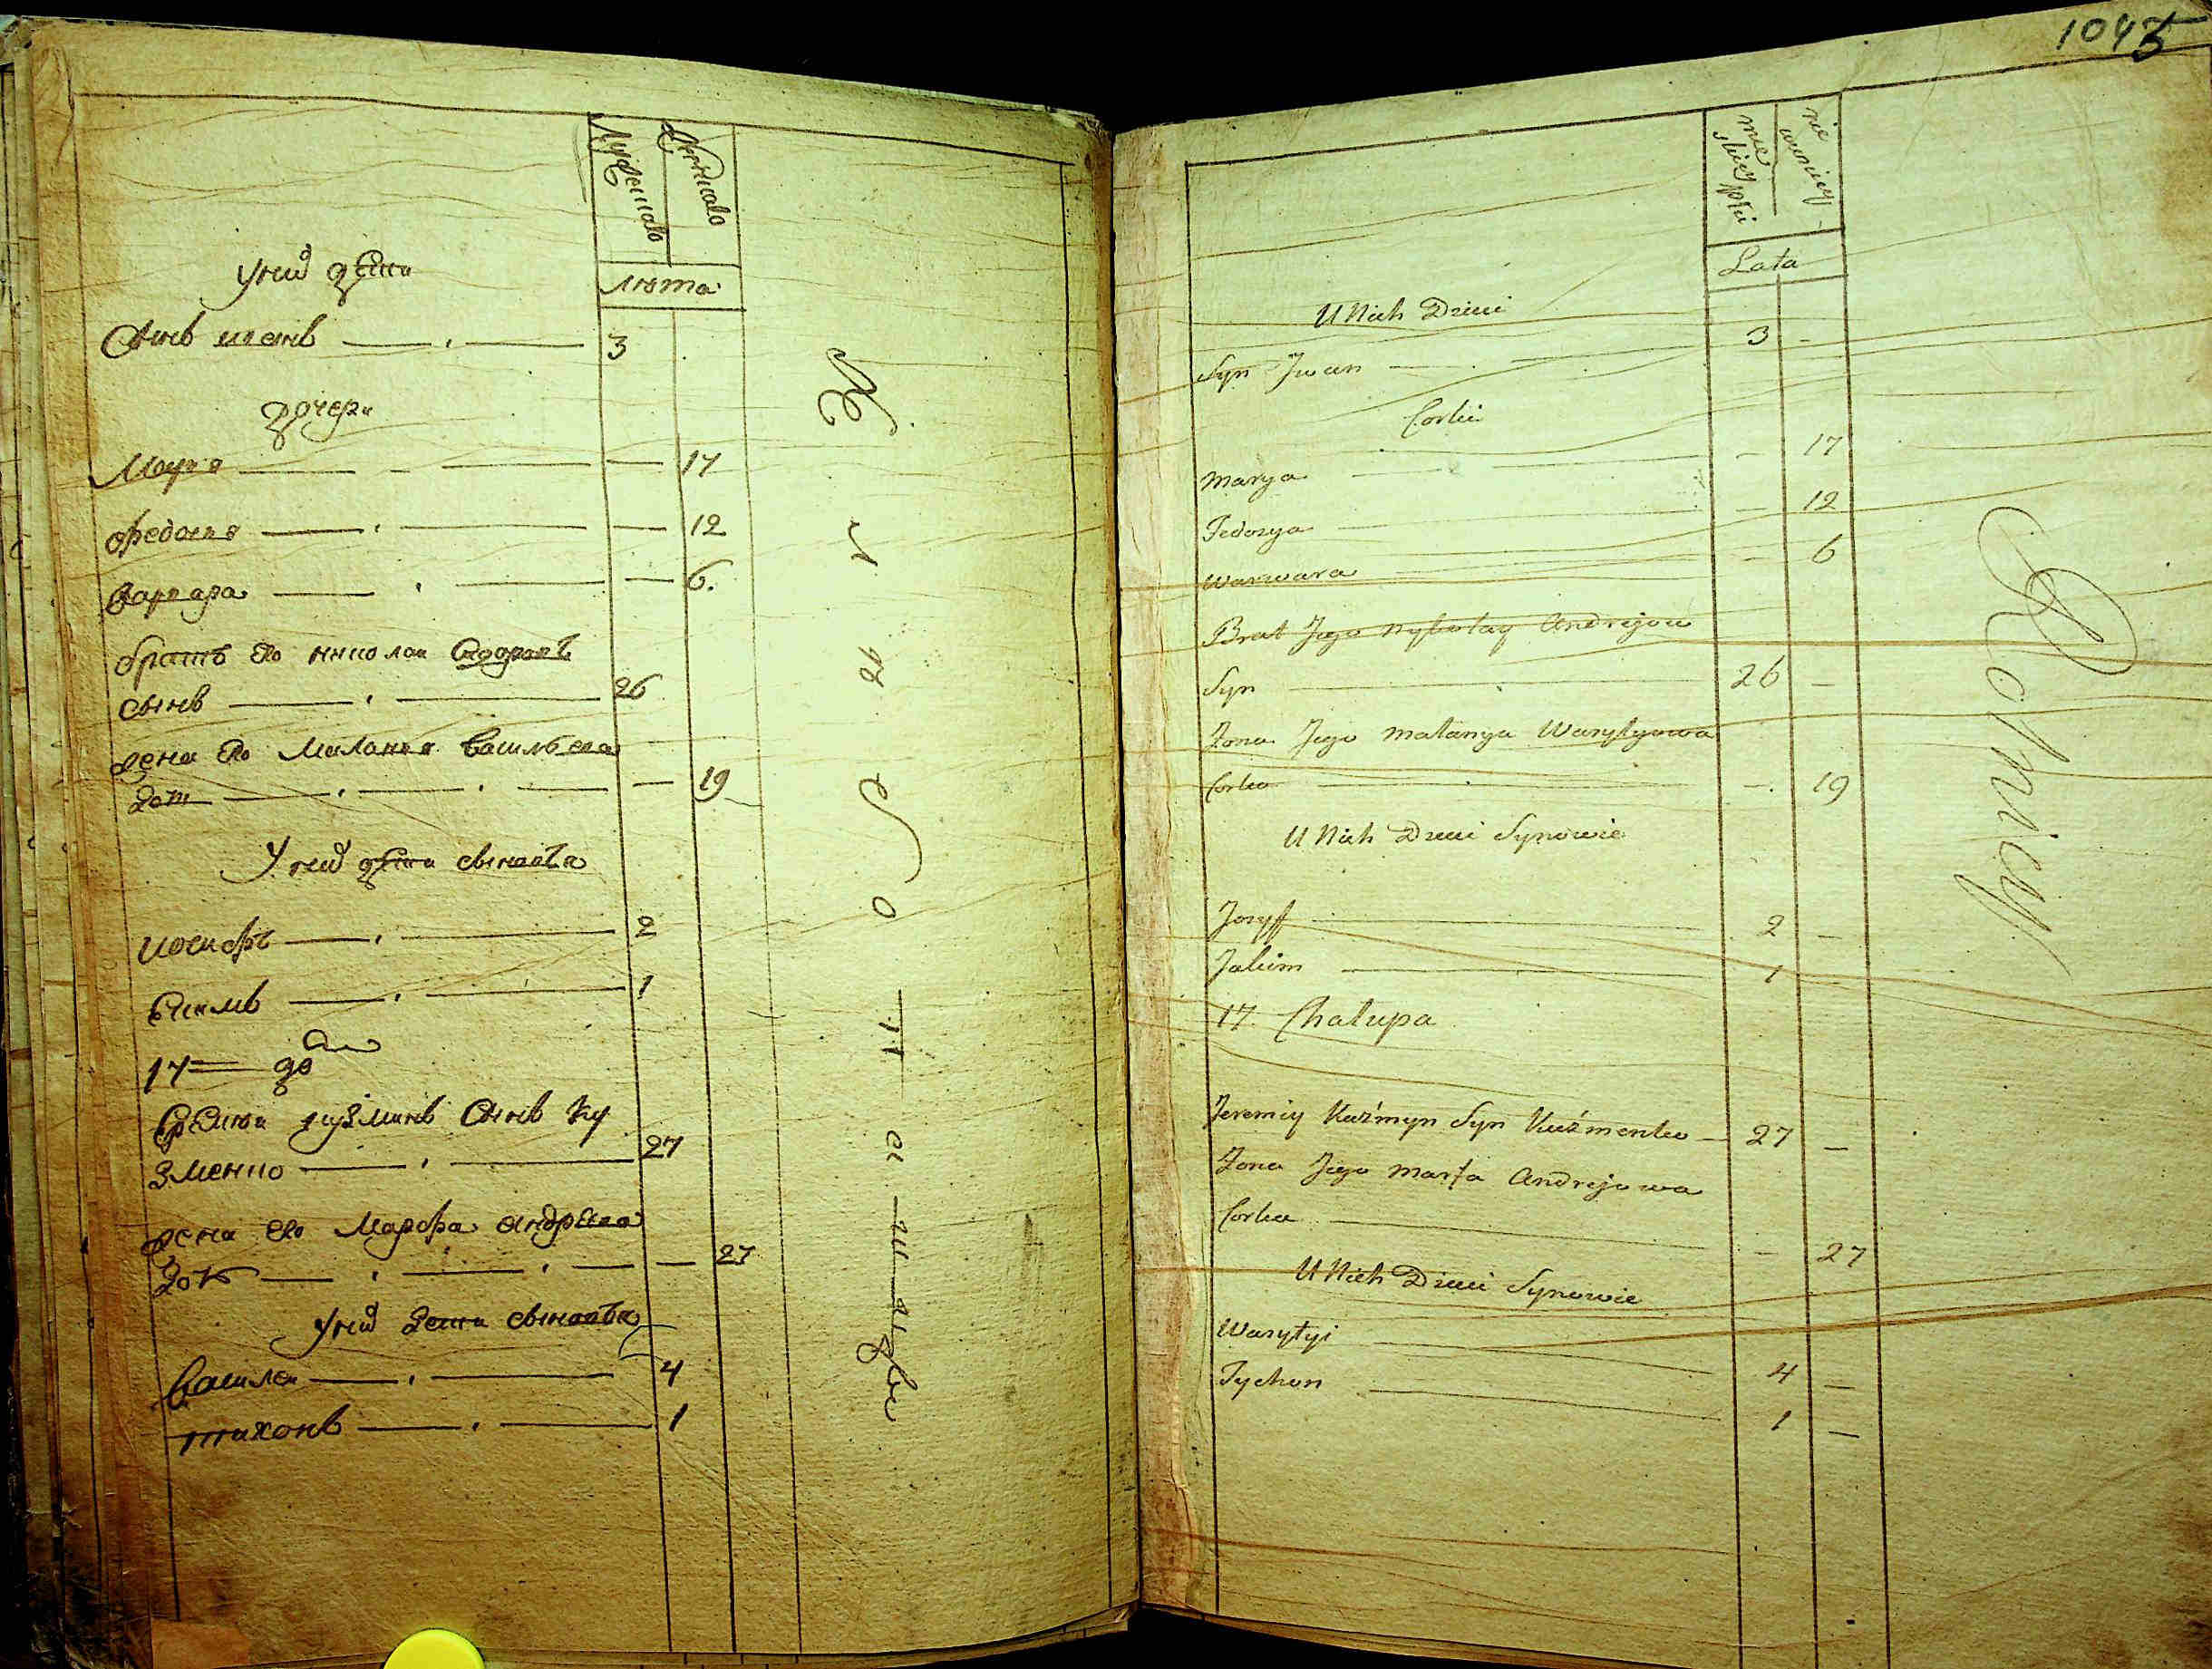 Мужеска
Женска
лѣта
У них дети
Сынъ иванъ 3
дочери
Марья 17
Федосия 12
Варвара 6.
братъ его николай андреевъ
сынъ 26
жена его Маланья Васильева
доч 19
У них дети сыновья
иосифъ 2
Екимъ 1
17 дво
Еремей кузминъ Сынъ Ку
зменко 27
жена его Марфа андреева
доч 27
У них дети сыновья
Василей 4
тихонъ 1
Хлебопашцы
1045
męskiey płci
niewieściey
Lata
U Nich Dzieci
Syn Jwan 3 -
Corki
Marya - 17
Fedosya - 12
Warwara - 6
Brat Jego Mykołay Andrejow
Syn 26 -
Żona Jego Małanya Wasylyowa
Corka - 19
U Nich Dzieci Synowie
Jozyff 2 -
Jakim 1 -
17. Chalupa
Jeremiy Kuźmyn Syn Kuźmenko 27 -
Żona Jego Marfa Andrejowa
Corka - 27
U Nich Dzieci Synowie
Wasylyi 4 -
Tychon 1 -
Rolnicy